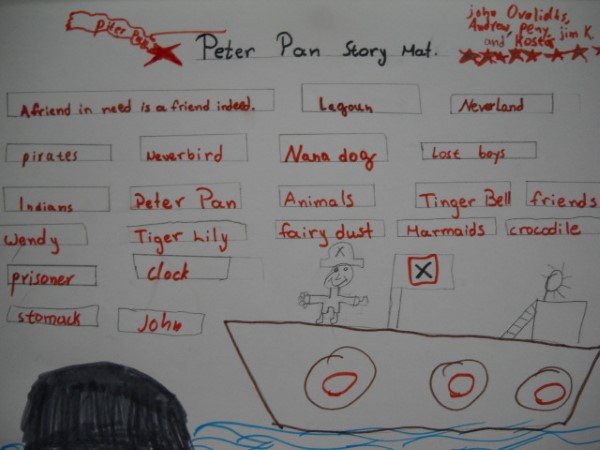 Peter Pan
Peter Pan Story Mat.
john Ovalidis,
Andrew, peny, jim K.
and Kostas
A friend in need is a friend indeed.
Lagoun
Neverland
pirates
Neverbird
Nana dog
Lost boys
Indians
Peter Pan
Animals
Tinger Bell
friends
Wendy
Tiger Lily
fairy dust
Marmaids
crocodile
prisoner
clock
stomack
John
X
X